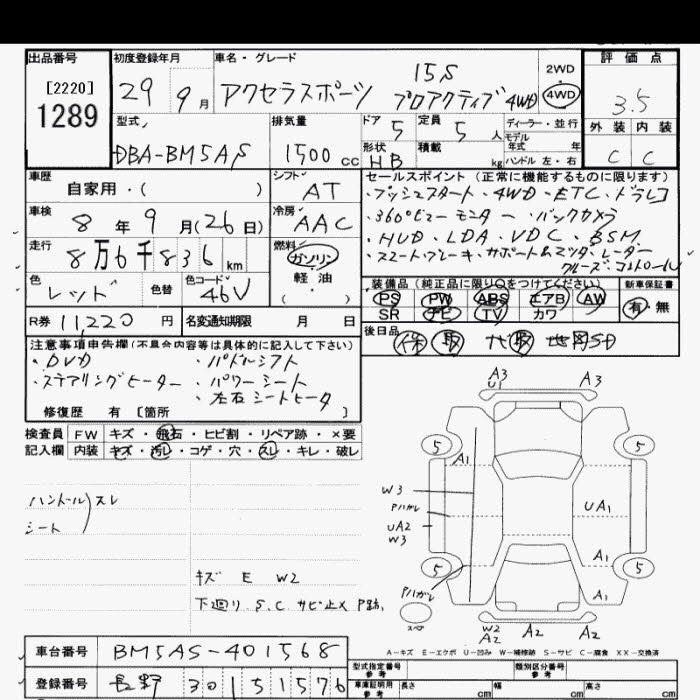 出品番号 初度登録年月 車名・グレード 評価点
[2220]
1289
29 9月
アクセラスポーツ 15S プロアクティブ 4WD
2WD
4WD
3.5
型式 排気量 ドア 定員 ディーラー・並行 外装 内装
DBA-BM5AS 1500 cc 5 5 人 モデル年式 年 C C
形状 HB 積載 kg ハンドル 左・右
車歴 シフト セールスポイント(正常に機能するものに限ります)
自家用・( ) AT
・プッシュスタート・4WD・ETC・ドラレコ
車検 冷房
8年 9月(26日) AAC
・360°ビューモニター ・バックカメラ
・HUD・LDA・VDC・BSM
走行 燃料
8万6千836km ガソリン
・スマートブレーキ・サポート・マツダ・レーダー
クルーズ・コントロール
色 色替 色コード 軽油
レッド 46V ( )
装備品(純正品に限り○をつけてください) 新車保証書
PS PW ABS エアB AW 有・無
SR ナビ TV カワ
R券 11,220円 名変通知期限 月 日
後日品 保 取 ナビ取 地図SD
注意事項申告欄(不具合内容等は具体的に記入して下さい)
・DVD ・パドルシフト
・ステアリングヒーター ・パワーシート
・左右シートヒータ
修復歴 有 [箇所
検査員 FW キズ・飛石・ヒビ割・リペア跡・×要
記入欄 内装 キズ・汚レ・コゲ・穴・スレ・キレ・破レ
ハンドル スレ
シート
キズ E W2
下廻り S.C サビ止× P跡
A3
U1
A3
5
5
A1
W3
Pハガレ
UA2
W3
UA1
A1
5
5
Pハガレ
A1
スペア
W2
A2
A2
A2
A-キズ E-エクボ U-凹み W-補修跡 S-サビ C-腐食 XX-交換済
車台番号 BM5AS-401568
型式指定番号 参考 類別区分番号 参考
登録番号 長野 301 ち 1576
車庫証明用 参考 長さ cm 幅 cm 高さ cm